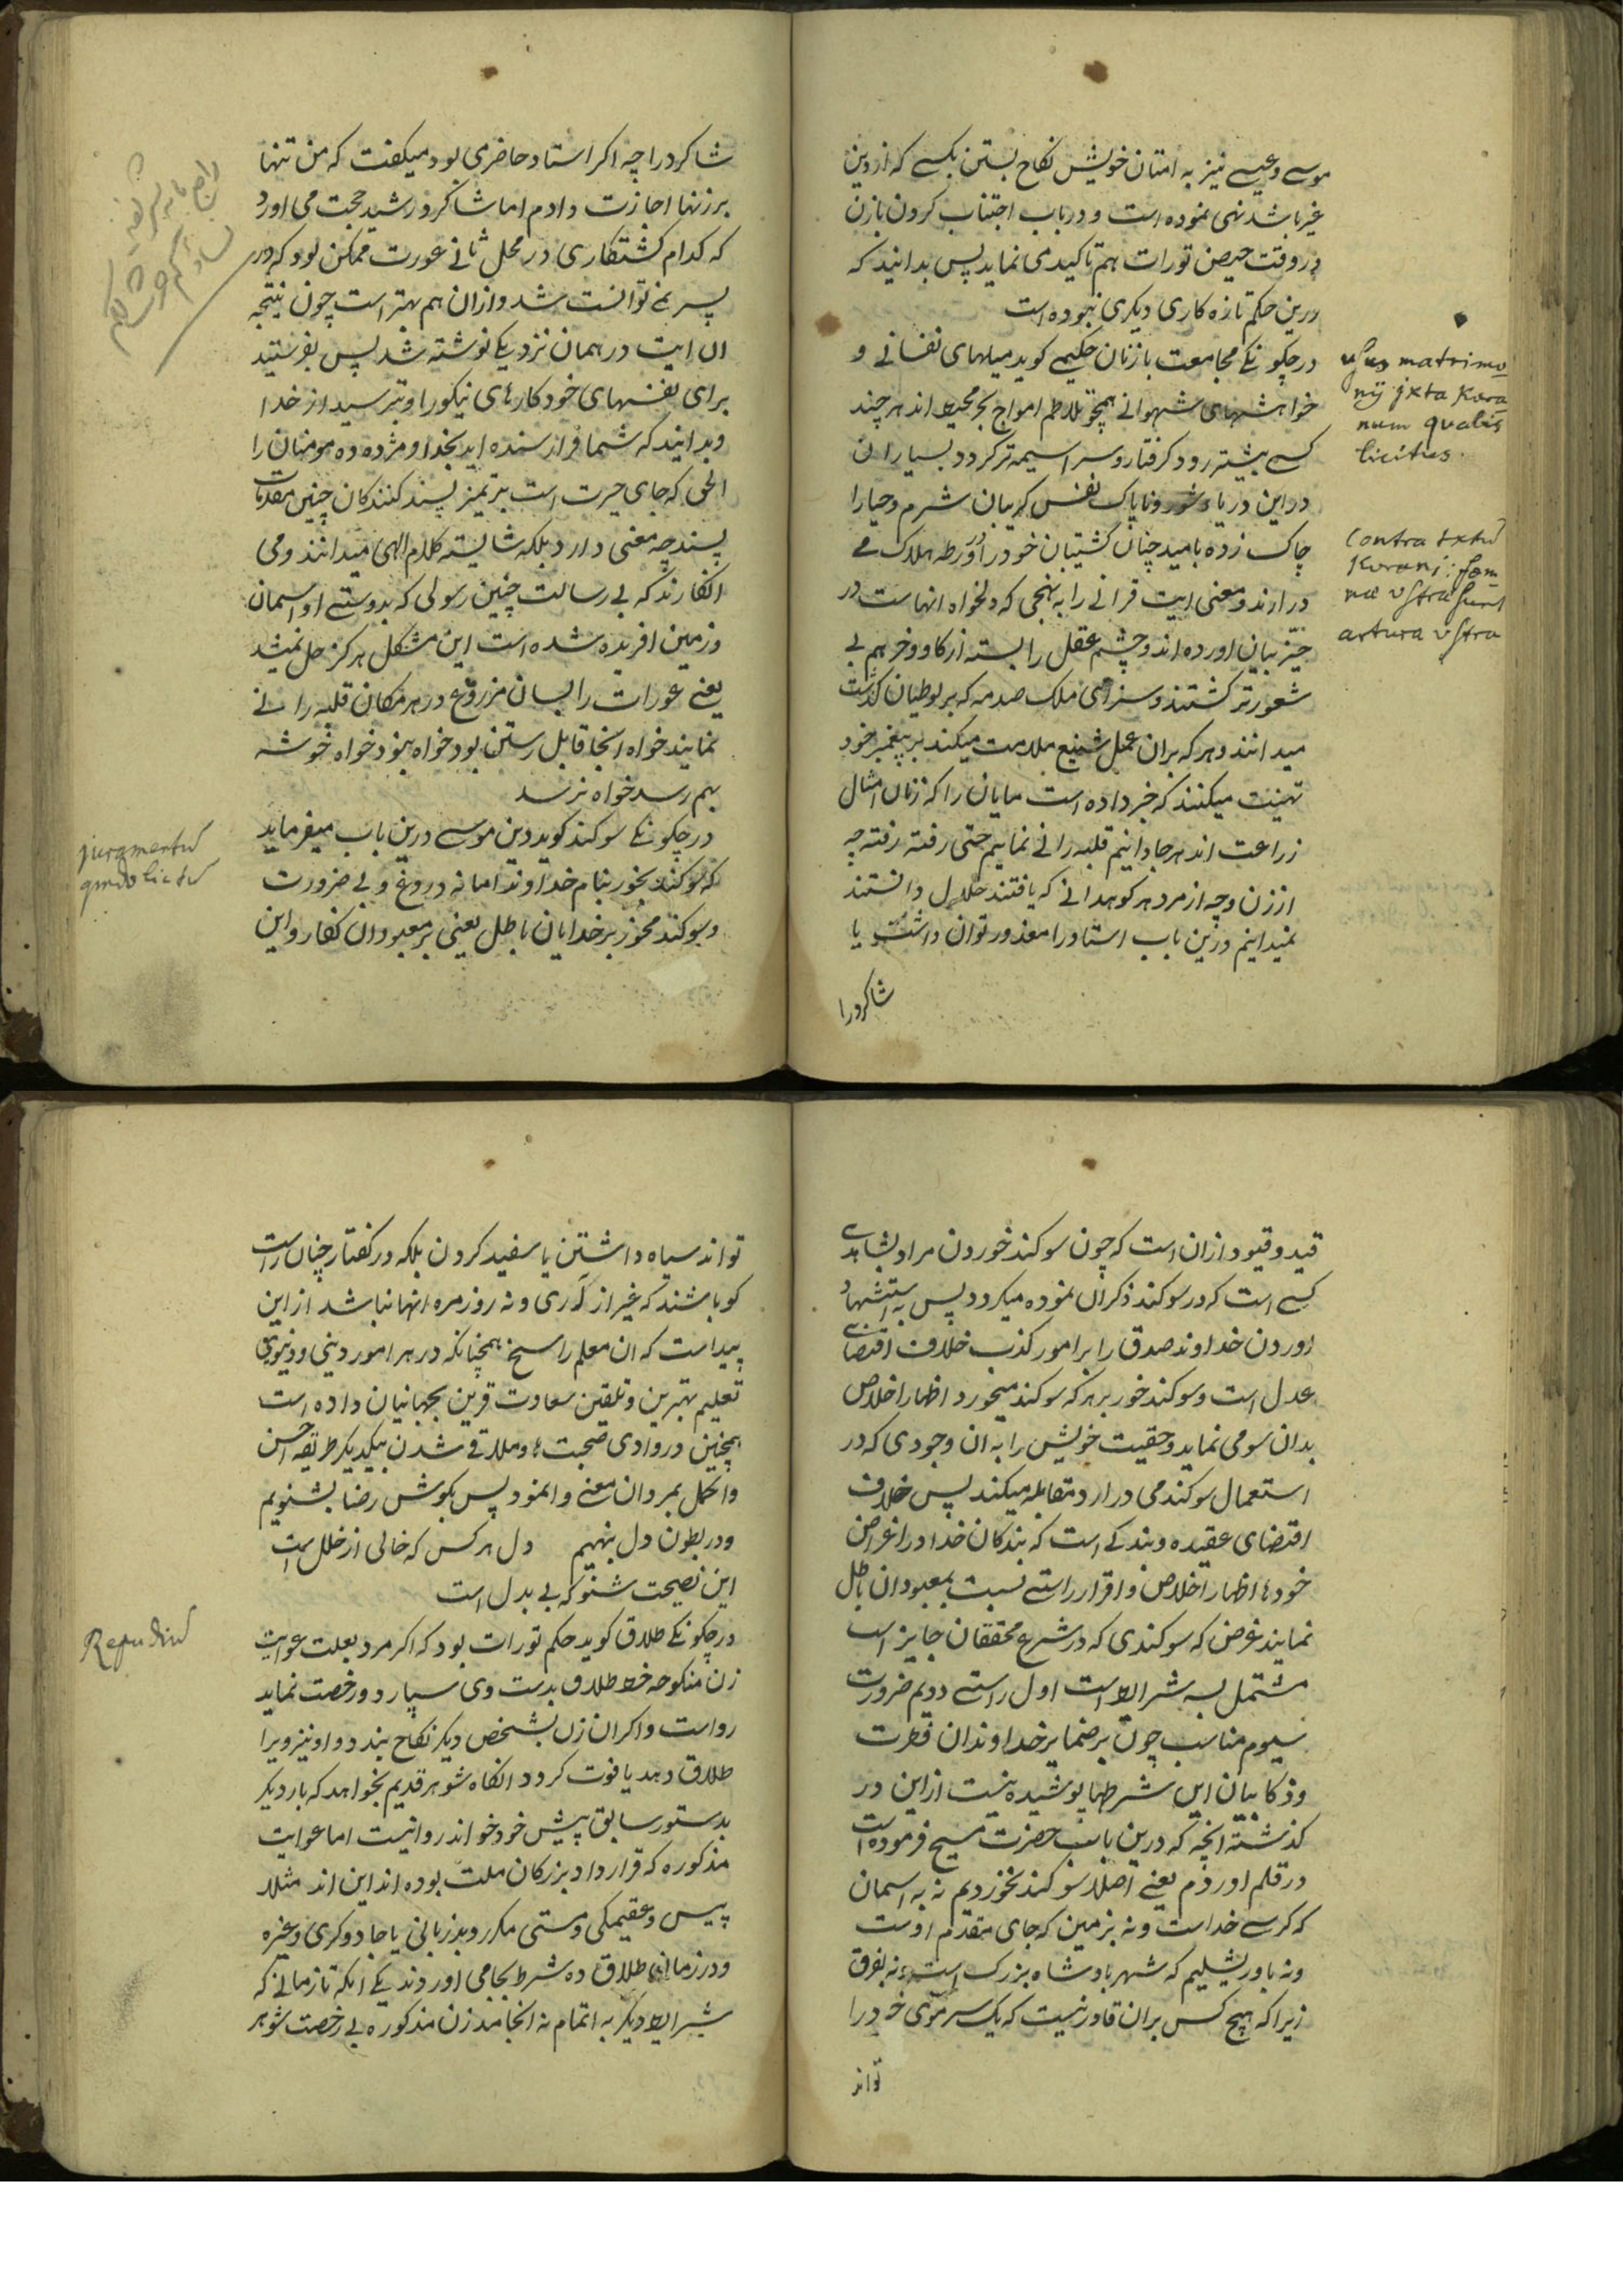 موسے وعیسے نیز به امتان خویش نکاح بستن بکسے که از دین
غیر باشد نهی نموده است و در باب اجتناب کردن باز زن
در وقت حیض تورات هم تاکیدی نماید پس بدانید که
درین حکم تازه کاری دیکری نبوده است
در چکونکے مجامعت با زنان حکیمے کوید میلهای نفسانے و
خواهشهای شهوانے همچو تلاطم امواج بحر محیط اند هر چند
کسے بیشتر رود کرفتار و سراسیمه تر کردد بسیاران
در این دریاء شور و ناپاک نفس کریبان شرم و حیا را
چاک زده بامید چنان کشتیبان خود را در ورطه هلاک مے
در ارند و معنی ایت قرانے را به نهجی که دلخواه انهاست در
حیّز بیان اورده اند و چشم عقل را بسته از کاو و خر هم بے
شعورتر کشتند و سزای ملک صدمه که بر لوطیان کذشت
میدانند و هر که بران عمل شنیع ملامت میکند بر پیغمبر خود
تهنیت میکنند که خبر داده است مایان را که زنان امثال
زراعت اند هر جا دانیم قلبه رانے نماییم حتی رفته رفته چه
از زن و چه از مرد هر کو همدانے که یافتند حلال دانستند
نمیدانیم درین باب استاد را معذور توان داشت یا
شاکرد را
usus matrimo
nij jxta Kora
num qualis
licitus.
Contra textū
Korani: fœm
næ vestræ sunt
artura vestra
شاکرد را چه اکر استاد حاضری بود میکفت که من تنها
بر زنها اجازت دادم اما شاکرد رشید حجت می اورد
که کدام کشتکاری در محل ثانے عورت ممکن بود که در
پسر نمے توانست شد و ازان هم بهتر است چون نتیجه
ان ایت در همان نزدیکے نوشته شد پس بفرستید
برای نفسهای خود کارهای نیکو را و بترسید از خدا
و بدانید که شما فرازسنده اید بخدا و مژده ده مومنان را
الحق که جای حیرت است بر تمیز پسند کنندکان چنین مقدمات
پسند چه معنی دارد بلکه شایسته کلام الهی میدانند و می
انکارند که بے رسالت چنین رسولی که بدوستے او اسمان
و زمین افریده شده است این مشکل هرکز حل نمیشد
یعنے عورات را بسان مزروع در هر مکان قلبه رانے
نمایند خواه انجا قابل رستن بود خواه نبود خواه خوشه
بهم رسد خواه نرسد
در چکونکے سوکند کوید دین موسے درین باب میفرماید
که سوکند بخور بنام خداوند اما نه دروغ و بے ضرورت
و سوکند مخور بر خدایان باطل یعنی بر معبودان کفار و این
juramentū
qmdo licitū
قید و قیود ازان است که چون سوکند خوردن مراد بشاهدے
کسے است که در سوکند ذکر ان نموده میکردد پس به استشهاد
اوردن خداوند صدق را بر امور کذب خلاف اقتضاے
عدل است و سوکند خور بر هر که سوکند میخورد اظهار اخلاص
بدان سو می نماید و حقیت خویش را به ان وجودی که در
استعمال سوکند می درارد مقابله میکند پس خلاف
اقتضای عقیده و بندکے است که بندکان خدا در اغراض
خودها اظهار اخلاص و اقرار راستے نسبت بمعبودان باطل
نمایند غرض که سوکندی که در شرع محققان جایز است
مشتمل بسه شرایط است اول راستے دویم ضرورت
سیوم مناسب چون بر ضمایر خداوندان فطرت
و ذکا بیان این شرطها پوشیده نیست ازاین در
کذشته انچه که درین باب حضرت مسیح فرموده است
در قلم اوردم یعنے اصلا سوکند نخوردیم نه به اسمان
که کرسے خداست و نه بزمین که جای متقدم اوست
و نه باورشلیم که شهر بادشاه بزرک است و نه بفرق
زیرا که هیچ کس بران قادر نیست که یک سر موی خود را
تواند
تواند سیاه داشتن یا سفید کردن بلکه در کفتار چنان راست
کو باشند که غیر از آری و نه روزمره انها نباشد ازاین
پیداست که ان معلم راسخ همچنانکه در هر امور دینی و دنیوی
تعلیم بهترین و تلقین سعادت قرین بجهانیان داده است
همچنین در وادی صحبتها و ملاقے شدن بیکدیکر طریقه احسن
و اکمل بمردان معنے وانمود پس بکوش رضا بشنویم
و در بطون دل بنهیم دل هر کس که خالی از خلل است
این نصیحت شنو که بے بدل است
در چکونکے طلاق کوید حکم تورات بود که اکر مرد بعلت عوایت
زن منکوحه خط طلاق بدست وی سپارد و رخصت نماید
رواست و اکر ان زن بشخص دیکر نکاح بندد و او نیز ویرا
طلاق دهد یا فوت کردد انکاه شوهر قدیم بخواهد که بار دیکر
بدستور سابق پیش خود خواند روا نیست اما عوایت
مذکوره که قرارداد بزرکان ملت بوده اند این اند مثلا
پیس و عقیمکی و مستی مکرر و بدزبانی یا جادوکری و غیره
و در زمان طلاق ده شرط بجا می اوردند یکے انکه تا زمانے که
شرایط دیکر به اتمام نه انجامد زن مذکوره بے رخصت شوهر
Repudiū